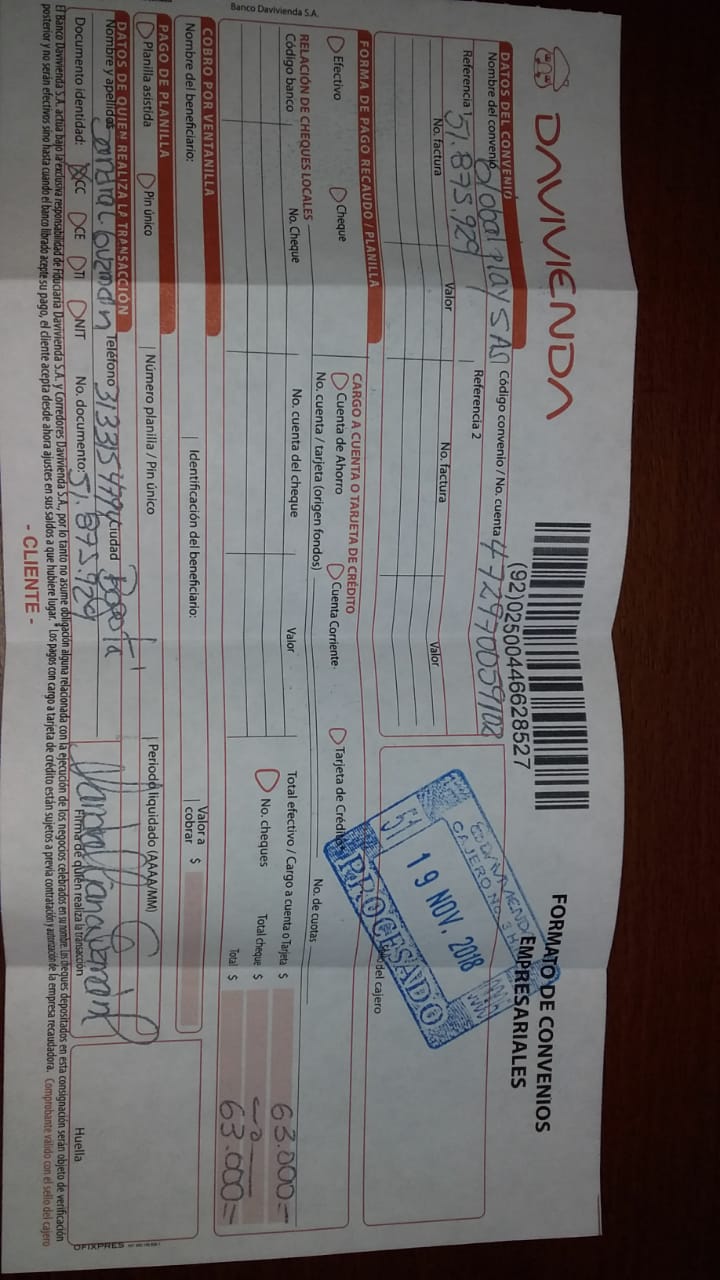 DAVIVIENDA
FORMATO DE CONVENIOS
EMPRESARIALES
(92)02500446628527
DATOS DEL CONVENIO
Nombre del convenio Global play SAS Código convenio / No. cuenta 472970059102
Referencia 1 51.875.929 Referencia 2
No. factura Valor No. factura Valor
CAJERO No. 3
51 19 NOV. 2018
PROCESADO
del cajero
FORMA DE PAGO RECAUDO / PLANILLA
Efectivo Cheque
CARGO A CUENTA O TARJETA DE CRÉDITO
Cuenta de Ahorro Cuenta Corriente Tarjeta de Crédito
No. cuenta / tarjeta (origen fondos) No. de cuotas
RELACIÓN DE CHEQUES LOCALES
Código banco No. Cheque No. cuenta del cheque Valor
Total efectivo / Cargo a cuenta o Tarjeta $ 63.000=
No. cheques Total cheque $
Total $ 63.000=
COBRO POR VENTANILLA
Nombre del beneficiario: Identificación del beneficiario: Valor a cobrar $
PAGO DE PLANILLA
Planilla asistida Pin único Número planilla / Pin único Periodo liquidado (AAAA/MM)
DATOS DE QUIEN REALIZA LA TRANSACCIÓN
Nombre y apellidos Sandra L Guzmán Teléfono Ciudad Bogotá
Documento identidad: CC CE TI NIT No. documento: 51.875.929 Firma de quien realiza la transacción Huella
El Banco Davivienda S.A. actúa bajo la exclusiva responsabilidad de Fiduciaria Davivienda S.A. y Corredores Davivienda S.A., por lo tanto no asume obligación alguna relacionada con la ejecución de los negocios celebrados en su nombre. Los cheques depositados en esta consignación serán objeto de verificación
posterior y no serán efectivos sino hasta cuando el banco librado acepte su pago, el cliente acepta desde ahora ajustes en sus saldos a que hubiere lugar. * Los pagos con cargo a tarjeta de crédito están sujetos a previa contratación y autorización de la empresa recaudadora. Comprobante válido con el sello del cajero
- CLIENTE -
Banco Davivienda S.A.
OFIXPRES